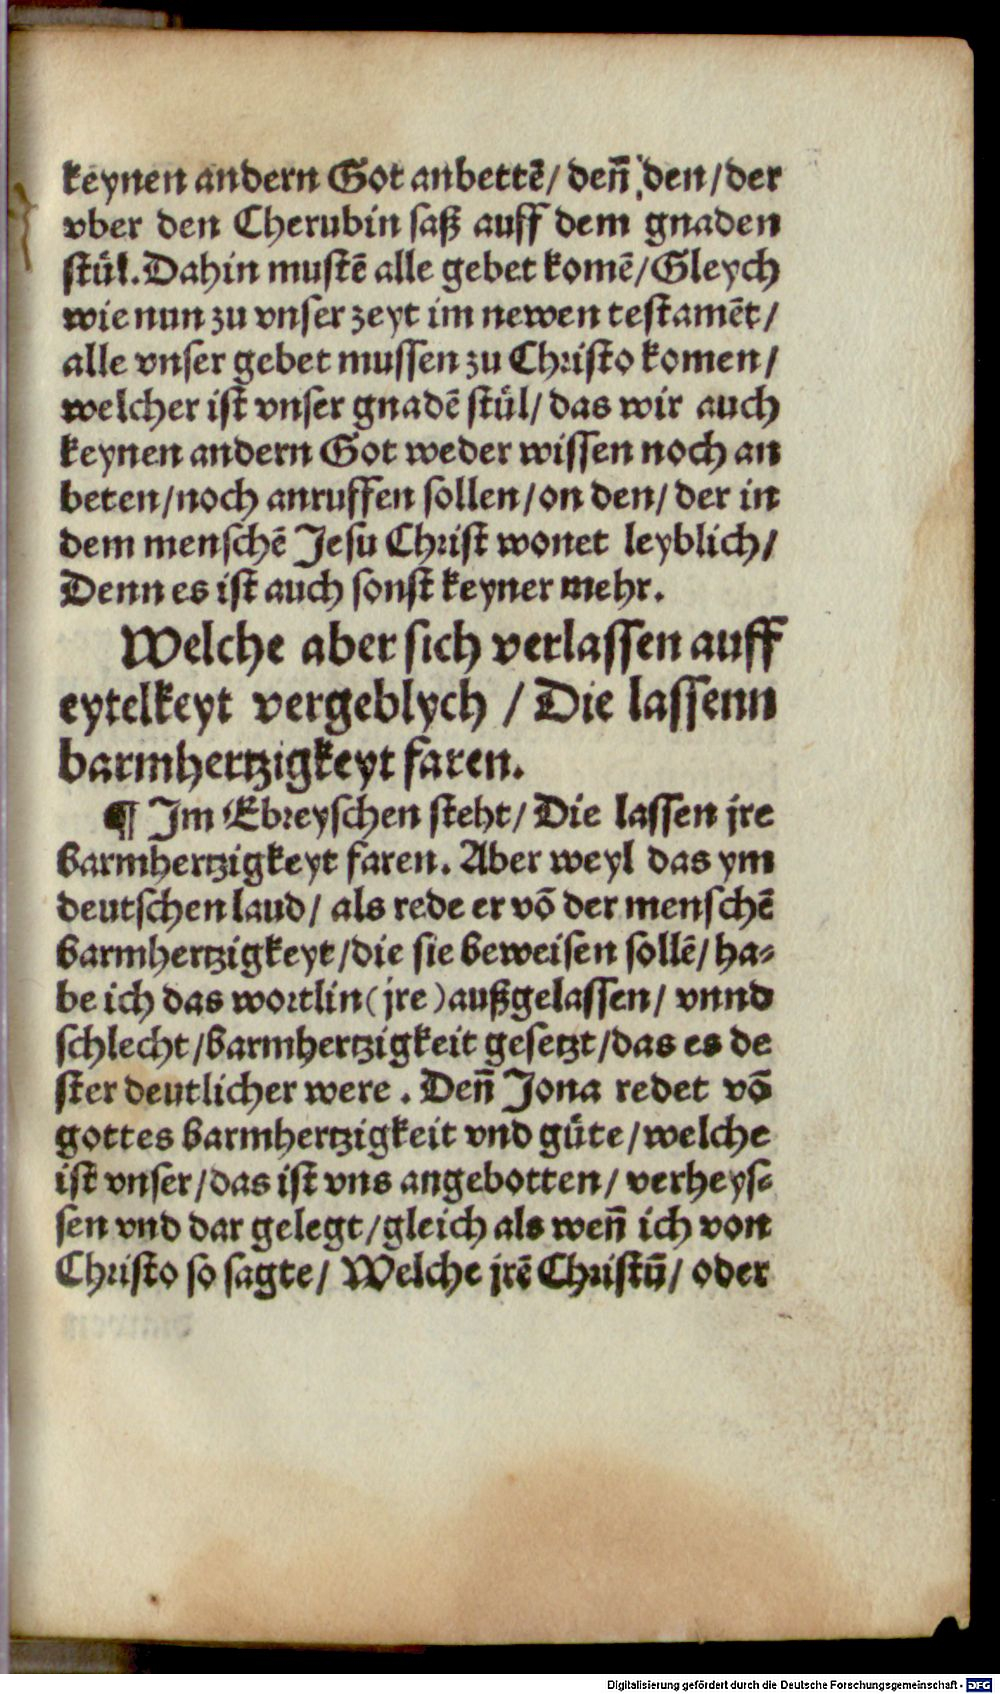 keynen andern Got anbettē/ deñ den/ der
vber den Cherubin saß auff dem gnaden
stůl. Dahin mustē alle gebet komē/ Gleych
wie nun zu vnser zeyt im newen testamēt/
alle vnser gebet mussen zu Christo komen/
welcher ist vnser gnadē stůl/ das wir auch
keynen andern Got weder wissen noch an
beten/ noch anruffen sollen/ on den/ der in
dem menschē Jesu Christ wonet leyblich/
Denn es ist auch sonst keyner mehr.
Welche aber sich verlassen auff
eytelkeyt vergeblych / Die lassenn
barmhertzigkeyt faren.
¶ Im Ebreyschen steht/ Die lassen jre
barmhertzigkeyt faren. Aber weyl das ym
deutschen laud/ als rede er vō der menschē
barmhertzigkeyt/ die sie beweisen sollē/ ha-
be ich das wortlin (jre) außgelassen/ vnnd
schlecht/ barmhertzigkeit gesetzt/ das es de
ster deutlicher were. Deñ Jona redet vō
gottes barmhertzigkeit vnd gůte/ welche
ist vnser/ das ist vns angebotten/ verheys-
sen vnd dar gelegt/ gleich als weñ ich von
Christo so sagte/ Welche jrē Christū/ oder
Digitalisierung gefördert durch die Deutsche Forschungsgemeinschaft - DFG